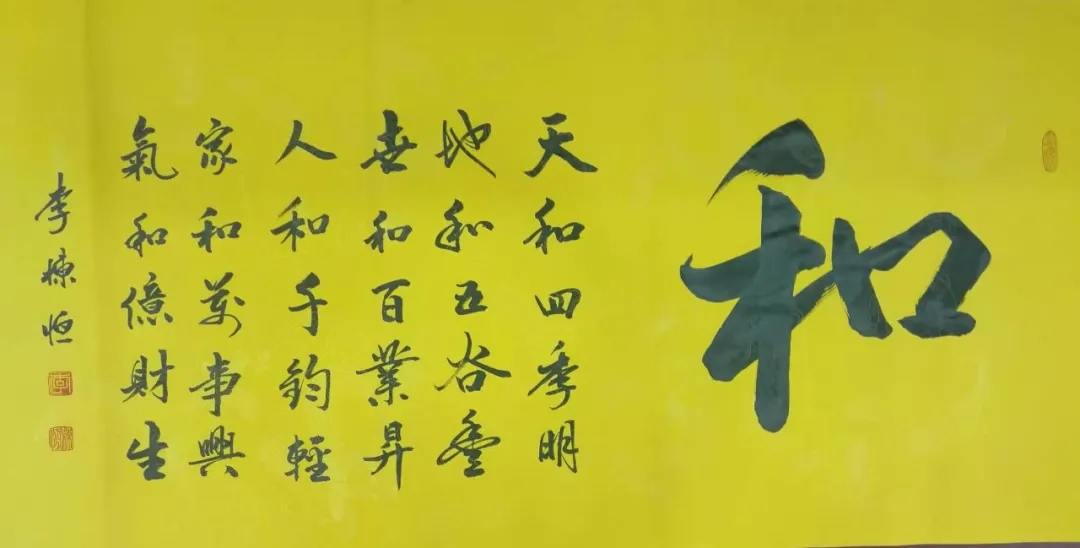 和
天和四季明
地和五谷豐
世和百業昇
人和千鈞輕
家和萬事興
氣和億財生
李棟恒